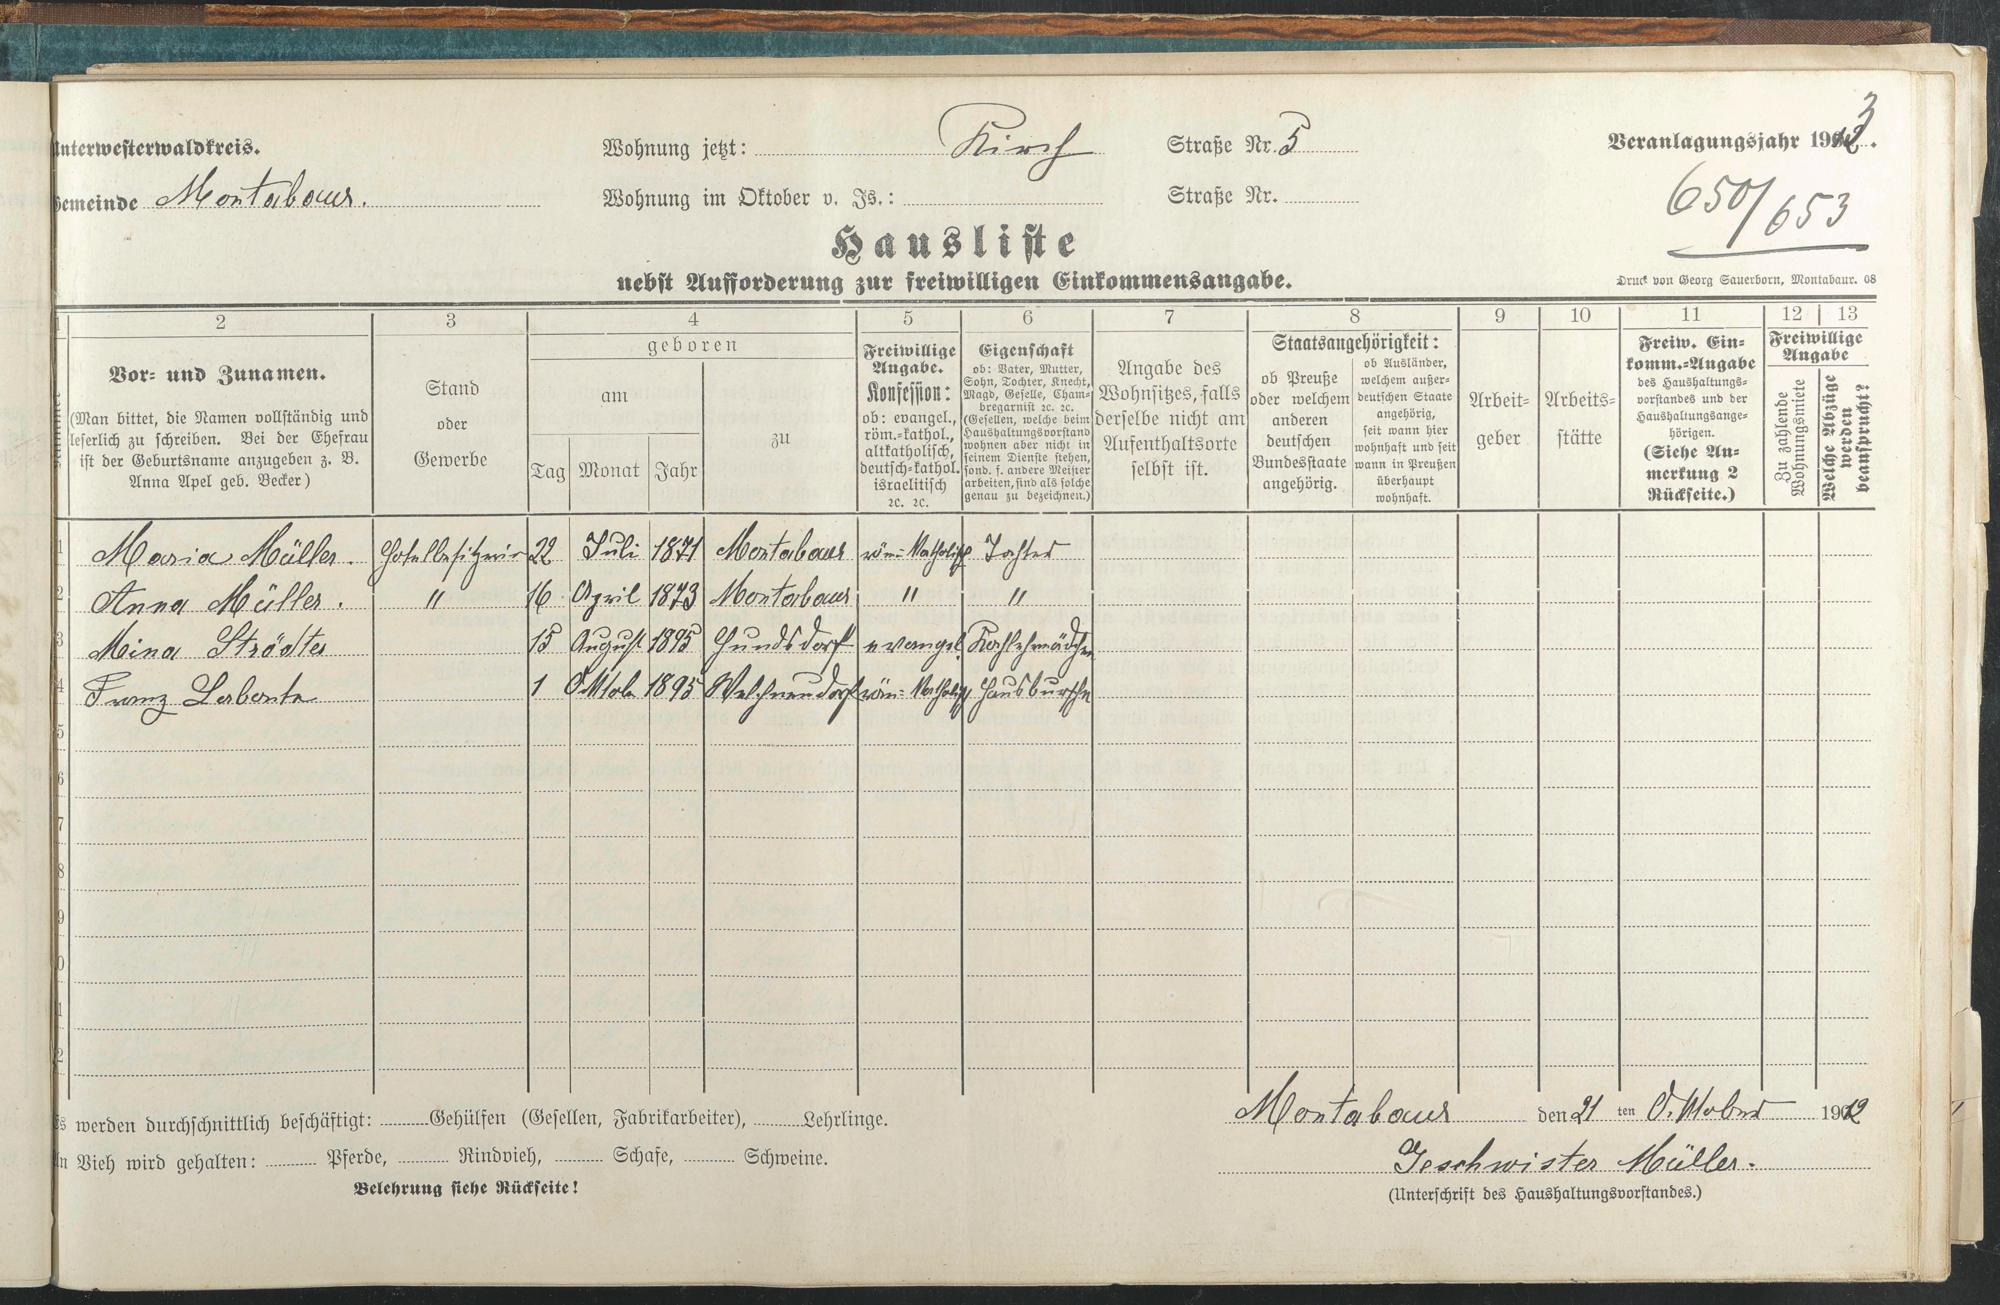 Unterwesterwaldkreis.
Wohnung jetzt: Kirch Straße Nr. 5
Veranlagungsjahr 1913.
Gemeinde Montabaur.
Wohnung im Oktober v. Js.: Straße Nr.
650/653
Hausliste
nebst Aufforderung zur freiwilligen Einkommensangabe.
Druck von Georg Sauerborn, Montabaur. 08
1 2 3 4 5 6 7 8 9 10 11 12 13
Vor- und Zunamen.
(Man bittet, die Namen vollständig und
leserlich zu schreiben. Bei der Ehefrau
ist der Geburtsname anzugeben z. B.
Anna Apel geb. Becker)
Stand
oder
Gewerbe
geboren
am
Tag Monat Jahr
zu
Freiwillige
Angabe.
Konfession:
ob: evangel.,
röm.-kathol.,
altkatholisch,
deutsch-kathol.
israelitisch
2c. 2c.
Eigenschaft
ob: Vater, Mutter,
Sohn, Tochter, Knecht,
Magd, Geselle, Cham-
bregarnist 2c. 2c.
(Gesellen, welche beim
Haushaltungsvorstand
wohnen aber nicht in
seinem Dienste stehen,
sond. f. andere Meister
arbeiten, sind als solche
genau zu bezeichnen.)
Angabe des
Wohnsitzes, falls
derselbe nicht am
Aufenthaltsorte
selbst ist.
Staatsangehörigkeit:
ob Preuße
oder welchem
anderen
deutschen
Bundesstaate
angehörig.
ob Ausländer,
welchem außer-
deutschen Staate
angehörig,
seit wann hier
wohnhaft und seit
wann in Preußen
überhaupt
wohnhaft.
Arbeit-
geber
Arbeits-
stätte
Freiw. Ein-
komm.-Angabe
des Haushaltungs-
vorstandes und der
Haushaltungsange-
hörigen.
(Siehe An-
merkung 2
Rückseite.)
Freiwillige
Angabe
Zu zahlende
Wohnungsmiete
Welche Abzüge
werden
beansprucht?
1 Maria Müller. Hotelbesitzerin 22 Juli 1871 Montabaur röm.-katholisch Tochter
2 Anna Müller. " 16 April 1873 Montabaur " "
3 Mina Strödter 15 August 1895 Hundsdorf evangel. Kochlehrmädchen
4 Franz Labonte 1 Oktob. 1895 röm.-katholisch Hausbursche
5
6
7
8
9
0
1
2
Es werden durchschnittlich beschäftigt: Gehülfen (Gesellen, Fabrikarbeiter), Lehrlinge.
An Vieh wird gehalten: Pferde, Rindvieh, Schafe, Schweine.
Belehrung siehe Rückseite!
Montabaur den 21 ten Oktober 1912
Geschwister Müller.
(Unterschrift des Haushaltungsvorstandes.)